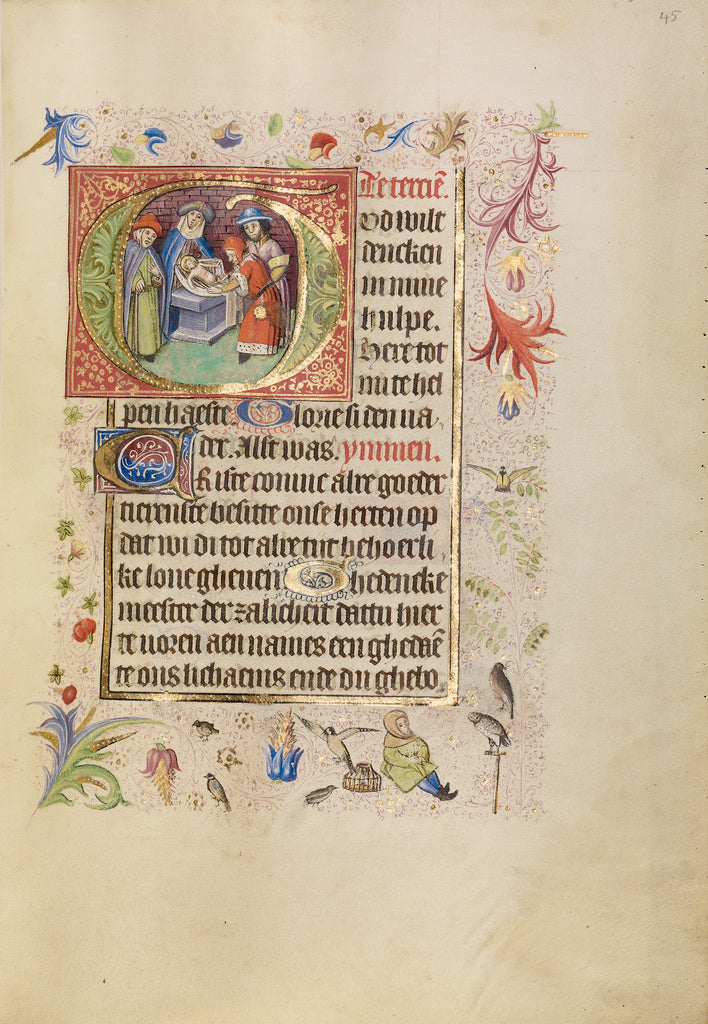 45
Te terciē.
od wilt
dencken
in mine
hulpe.
Here tot
mi te hel
pen haeste Glorie si den va
der. Alst was. ymmen.
Criste comme alre goeder
tierenste besitte onse herten op
dat wi di tot alre tijt behoerli
ke loue gheuen Ghedencke
meester der zalicheit dattu hier
te uoren aen names een ghedaē
te ons lichaems ende du ghebo